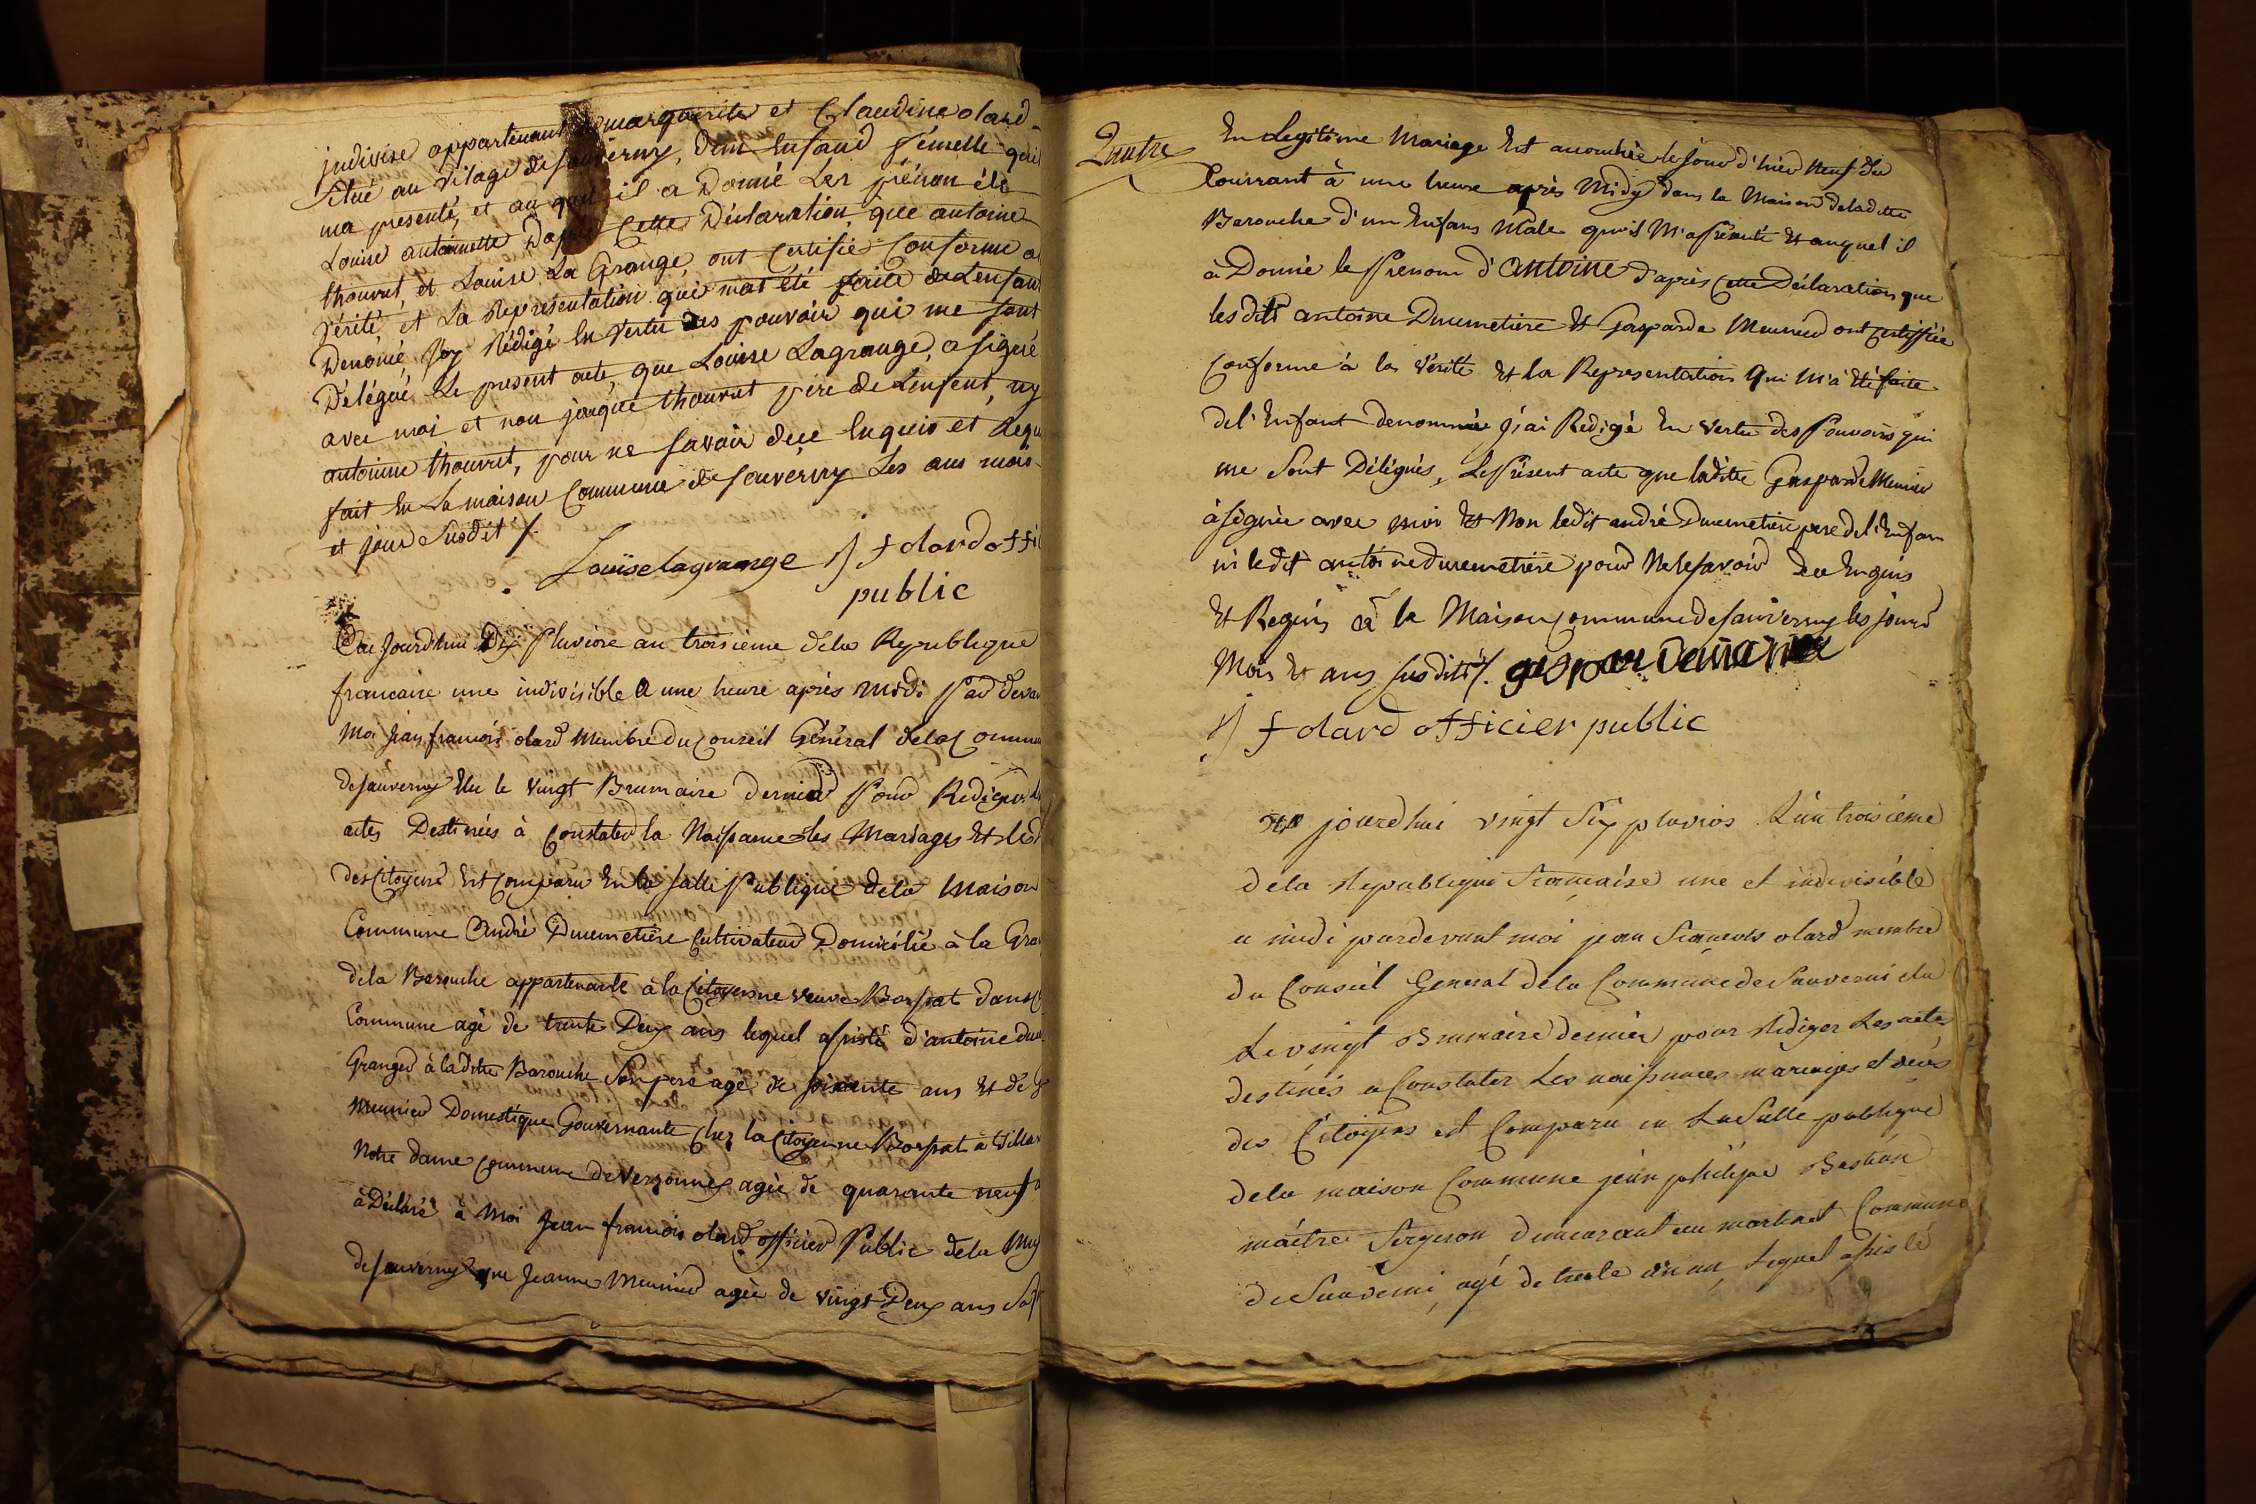 indivise appartenant a marguerite et Claudine olard
situé au vilage de sauverny, d'un Enfand femelle quil
ma presenté, et au quel il a Donné Les prénon de
Louise antoinette Dapres Cette Declaration, que antoine
thouvret, et Louise La Grange, ont Certifié Conforme a
vérité, et La Representation qui mat été faite de Lenfant
Denomé, J'ay Rédigé En vertu des pouvoir qui me sont
Délégué Le present acte, que Louise Lagrange, a signé
avec moi et non jacque thouvret pere de Lenfent, ny
antoinne thouvret, pour ne savoir dece Enquis et Requ
fait En La maison Commune de sauverny Les ans mois
et jour Susdit /.
Louise lagrange J f olard offi
public
Cau Jourd'hui Dix Pluviose an troisieme dela Republique
francaise une indivisible a une heure après midi Par deva
Moi Jean francois olard Membre du Conseil Général dela Commu
de sauverny Elu le vingt Brumaire dernier Pour Rediger Le
actes Destinés à Constater la Naissance les Mariages Et le d
des Citoyens Est Comparu En la salle Publique dela Maison
Commune André Dumetière Cultivateur Domicilié à la Gra
dela Barouche appartenante à la Citoyenne veuve Borssat dans
Commune agé de trente Deux ans lequel assisté d'antoine dum
Granger à laditte Barouche Son pere agé de soixante ans Et de G
Meunier Domestique Gouvernante Chez la Citoyenne Borssat à Villar
Notre dame Commune de Versonnex agée de quarante neuf a
à Déclaré à Moi Jean francois olard officier Public dela
de sauverny que Jeanne Meunier agée de vingt Deux ans Sa
L'autre
En Legitime Mariage Est accouchée le Jour d'hier Neuf du
Courrant à une heure après Midy dans la Maison deladitte
Barouche d'un Enfans Mâle qu'il M'a présenté Et auquel il
à Donné le Prenom d'antoine d'après Cette Déclaration que
lesdits antoine Dumetiere Et Gasparde Meunier ont certiffiée
Conforme à la vérité Et la Representation Qui M'a Eté faite
del'Enfant denommé j'ai Redigé En vertu des Pouvoirs qui
me Sont Délégués, Le Présent acte que laditte Gasparde Meunier
à signée avec moi Et Non ledit andré Dumetiere pere del'Enfan
ni ledit antoine dumetière pour Ne le savoir de ce Enquis
Et Requis à la Maison Commune de sauverny les jours
Mois Et ans susdits /.
J f olard officier public
jourdhui vingt Six pluvios L'an troisiéme
dela Republique francaise une et indivisible
a midi pardevant moi jean francois olard membre
du Conseil General dela Commune de Sauverni elu
Le vingt Brumaire dernier pour Rediger Les actes
destinés a Constater Les naissances mariages et décès
des Citoyens est Comparu en La Salle publique
dela maison Commune jean philipe Bastian
maître forgeron demeurant au martinet Commune
de Sauverni, agé de trente un an, Lequel assisté